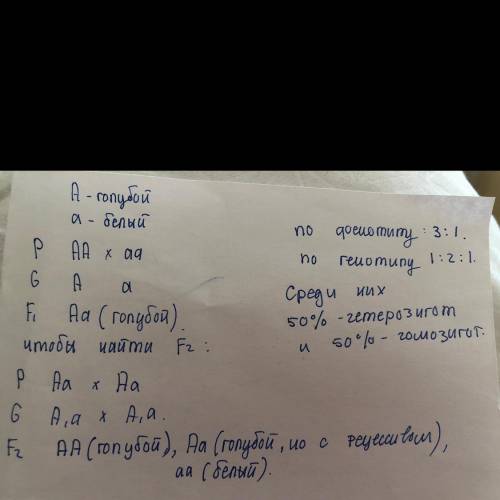 А - голубой
а - белый
P AA x aa
G A a
F₁ Aa (голубой).
чтобы найти F₂ :
P Aa x Aa
G A, a x A, a.
F₂ AA (голубой), Aa (голубой, но с рецессивом),
aa (белый).
по фенотипу : 3 : 1.
по генотипу 1 : 2 : 1.
Среди них
50% - гетерозигот
и 50% - гомозигот.